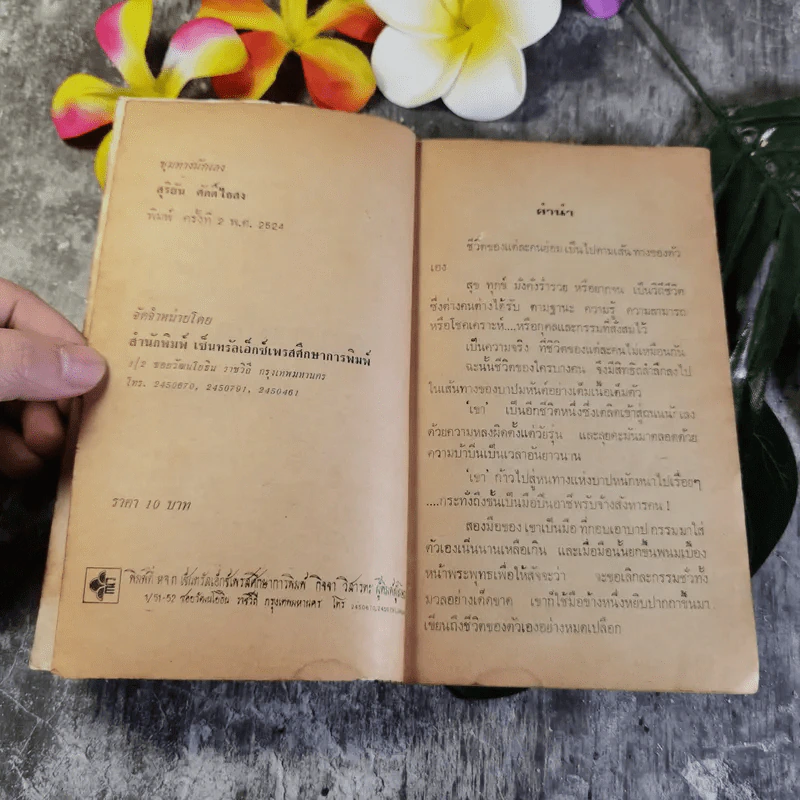 ชุมทางนักเลง
สุริยัน ศักดิ์ไธสง
พิมพ์ ครั้งที่ 2 พ.ศ. 2524
จัดจำหน่ายโดย
สำนักพิมพ์ เซ็นทรัลเอ็กซ์เพรสศึกษาการพิมพ์
1/2 ซอยวัฒนโยธิน ราชวิถี กรุงเทพมหานคร
โทร. 2450670, 2450791, 2450461
ราคา 10 บาท
พิมพ์ที่ หจก เซ็นทรัลเอ็กซ์เพรสศึกษาการพิมพ์ กิจจา วิสารทร ผู้พิมพ์ผู้โฆษณา
1/51-52 ซอยวัฒนโยธิน ราชวิถี กรุงเทพมหานคร โทร
คำนำ
ชีวิตของแต่ละคนย่อมเป็นไปตามเส้นทางของตัว
เอง
สุข ทุกข์ มั่งคั่งร่ำรวย หรือยากจน เป็นวิถีชีวิต
ซึ่งต่างคนต่างได้รับ ตามฐานะ ความรู้ ความสามารถ
หรือโชคเคราะห์....หรือกุศลและกรรมที่สั่งสมไว้
เป็นความจริง ที่ชีวิตของแต่ละคนไม่เหมือนกัน
ฉะนั้นชีวิตของใครบางคน จึงมีสิทธิถลำลึกลงไป
ในเส้นทางของบาปมหันต์อย่างเต็มเนื้อเต็มตัว
'เขา' เป็นอีกชีวิตหนึ่งซึ่งเตลิดเข้าสู่ถนนนักเลง
ด้วยความหลงผิดตั้งแต่วัยรุ่น และลุยตะบันมาตลอดด้วย
ความบ้าบิ่นเป็นเวลาอันยาวนาน
'เขา' ก้าวไปสู่หนทางแห่งบาปหนักหนาไปเรื่อยๆ
....กระทั่งถึงขั้นเป็นมือปืนอาชีพรับจ้างสังหารคน !
สองมือของเขาเป็นมือ ที่กอบเอาบาปกรรมมาใส่
ตัวเองเนิ่นนานเหลือเกิน และเมื่อมือนั้นยกขึ้นพนมเบื้อง
หน้าพระพุทธเพื่อให้สัจจะว่า จะขอเลิกละกรรมชั่วทั้ง
มวลอย่างเด็ดขาด เขาก็ใช้มือข้างหนึ่งหยิบปากกาขึ้นมา
เขียนถึงชีวิตของตัวเองอย่างหมดเปลือก